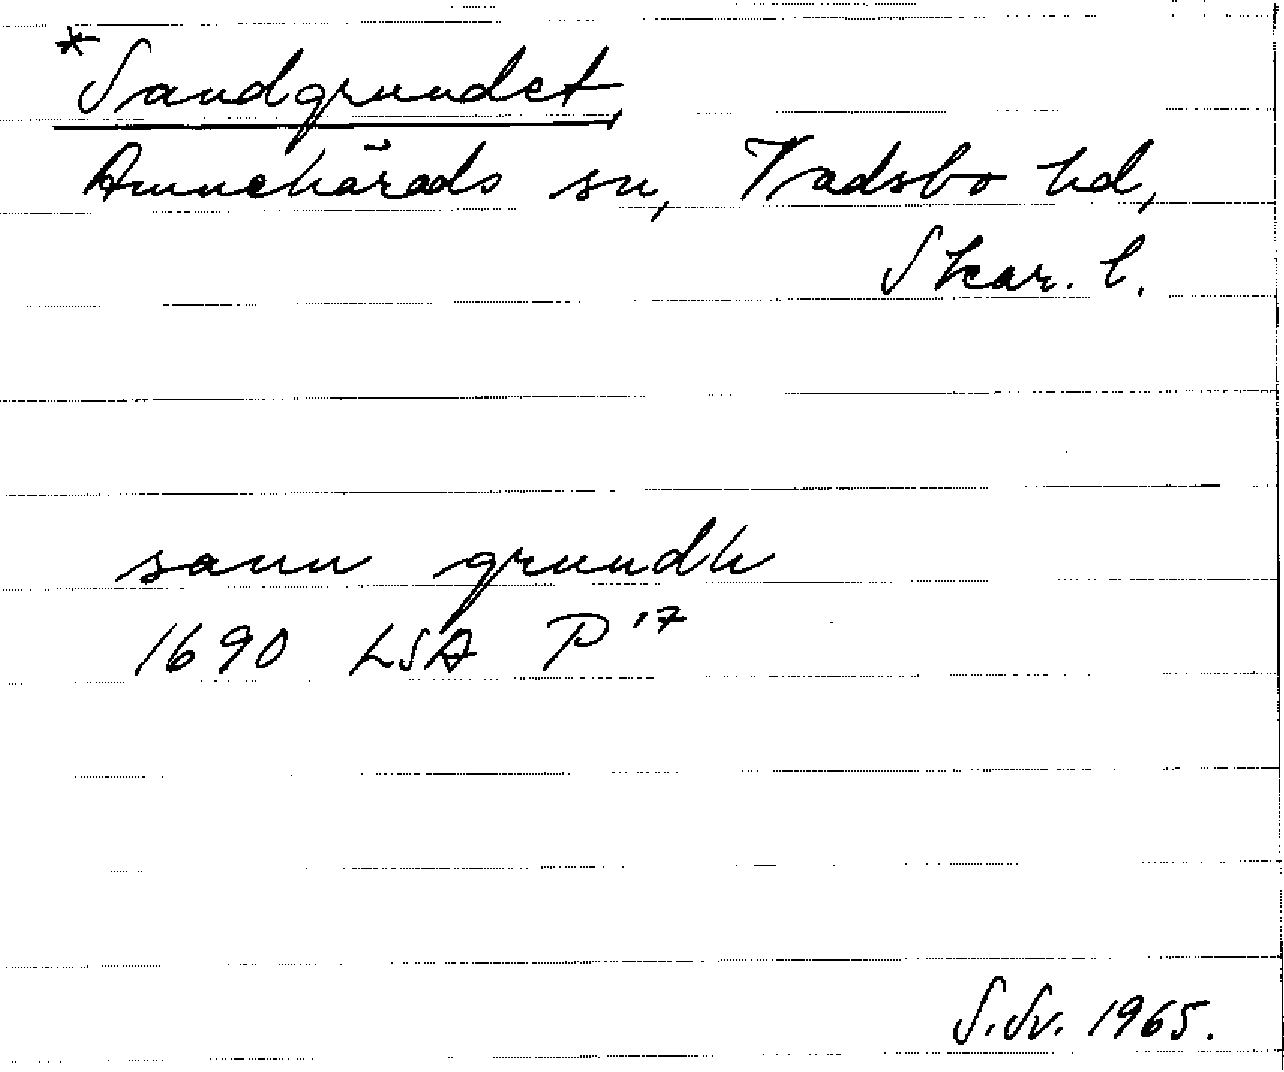 *Sandgrundet,
Amnehärads sn, Vadsbo hd,
Skar. l.
sann grundh
1690 LSA P 17
S. Sv. 1965.